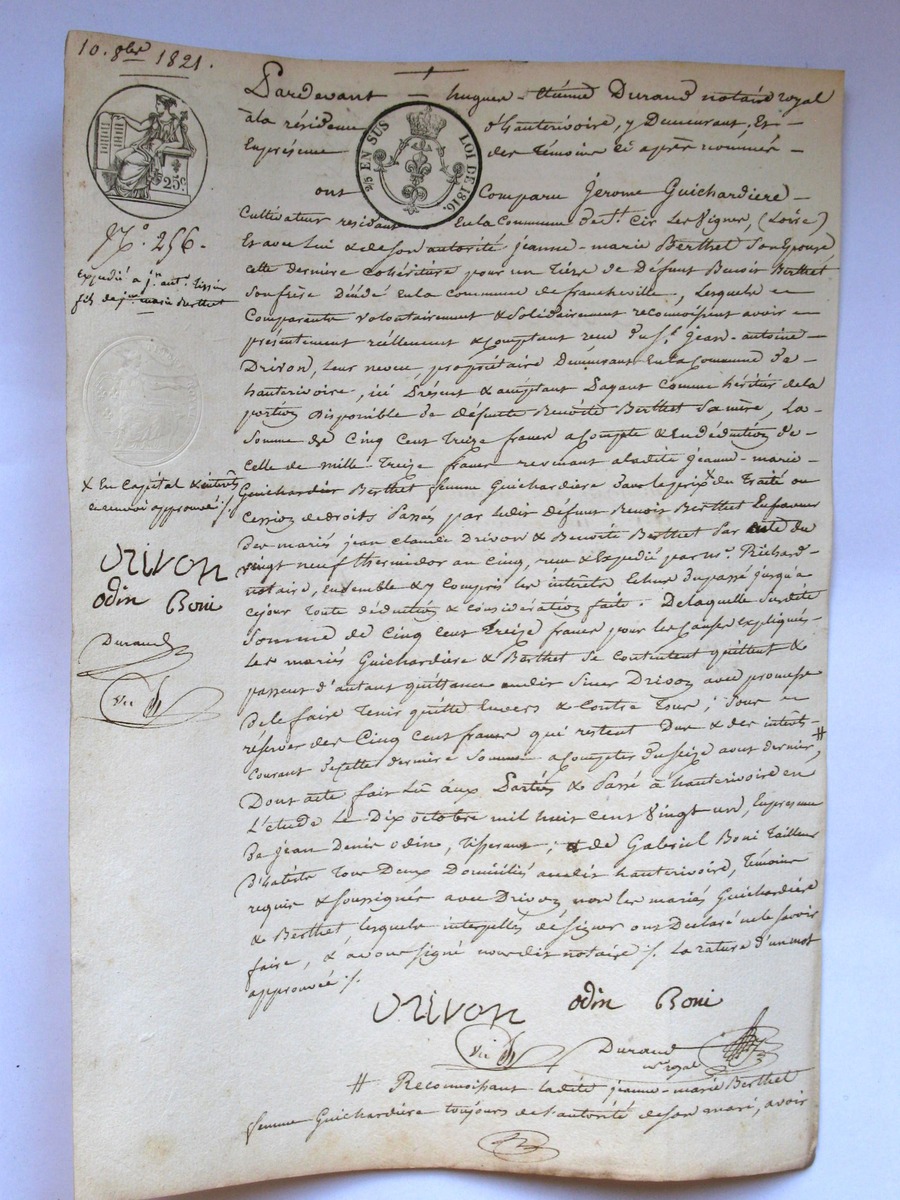 10. 8bre 1821.
25c
25 EN SUS LOI DE 1816.
N.° 256.
expédié à jn. ant. Tissier
fils de jne. marie Berthet
Pardevant hugues-Etienne Durand notaire royal
à la résidence d'hauterivoire, y Demeurant, Et
En présence des Témoins cy après nommés
ont Comparu Jérome Guichardiere
Cultivateur résidant En la Commune de St. Cir Les Vignes, (Loire)
Et avec Lui & de Son autorité jeanne-marie Berthet Son Epouse
cette derniere cohéritiere pour un Tiers de Défunt Benoit Berthet
Son frère Décédé En la Commune de francheville, Lesquels
Comparants volontairement & Solidairement reconnoissent avoir
présentement réellement & Comptant reçu du Sr. Jean-antoine
Drivon, Leur neveu, propriétaire Demeurant En la Commune d'
hauterivoire, ici Présent & acceptant Payant Comme héritier de la
portion Disponible de défunte Benoite Berthet Sa mère, La
Somme de Cinq Cent Treize francs a Compte & En déduction de
Celle de mille Treize francs revenant à ladite jeanne-marie
Guichardier Berthet femme Guichardiere Dans le prix X du Traité ou
Cession de droits Passés par ledit défunt Benoit Berthet En faveur
Des mariés jean Claude Drivon & Benoite Berthet Par acte du
vingt neuf thermidor an Cinq, reçu & Expédié par me. Richard
notaire, Ensemble & y Compris les intérêts Echus du passé jusqu'à
ce jour Toute déduction & Considération faite. De laquelle Susdite
Somme de Cinq Cent Treize francs pour les Causes Expliquées
Les mariés Guichardiere & Berthet Se Contentent quittent &
passent d'autant quittance audit Sieur Drivon avec promesse
de le faire Tenir quitte Envers & Contre Tous; Sous
réserve des Cinq Cent francs qui restent Dus & des intérêts
Courant de cette derniere Somme a Compter du Seize août dernier, #
Dont acte fait Lu aux Parties & Passé à hauterivoire en
L'étude Le Dix octobre mil huit cent Vingt un, En présence
de Jean Denis odin, Tisserant, & de Gabriel Boni Tailleur
d'habits Tous Deux Domiciliés audit hauterivoire, Témoins
requis & Soussignés avec Drivon non les mariés Guichardiere
& Berthet lesquels interpellés de signer ont Déclaré ne le Savoir
faire, & avons Signé nous dit notaire ./. La rature d'un mot
approuvée ./.
X En Capital & intérêts
ce renvoi approuvé ./.
Drivon
odin Boni
Durand
Drivon odin Boni
Durand
nre. royal
# Reconnoissant ladite jeanne-marie Berthet
femme Guichardiere toujours de l'autorité de Son mari, avoir